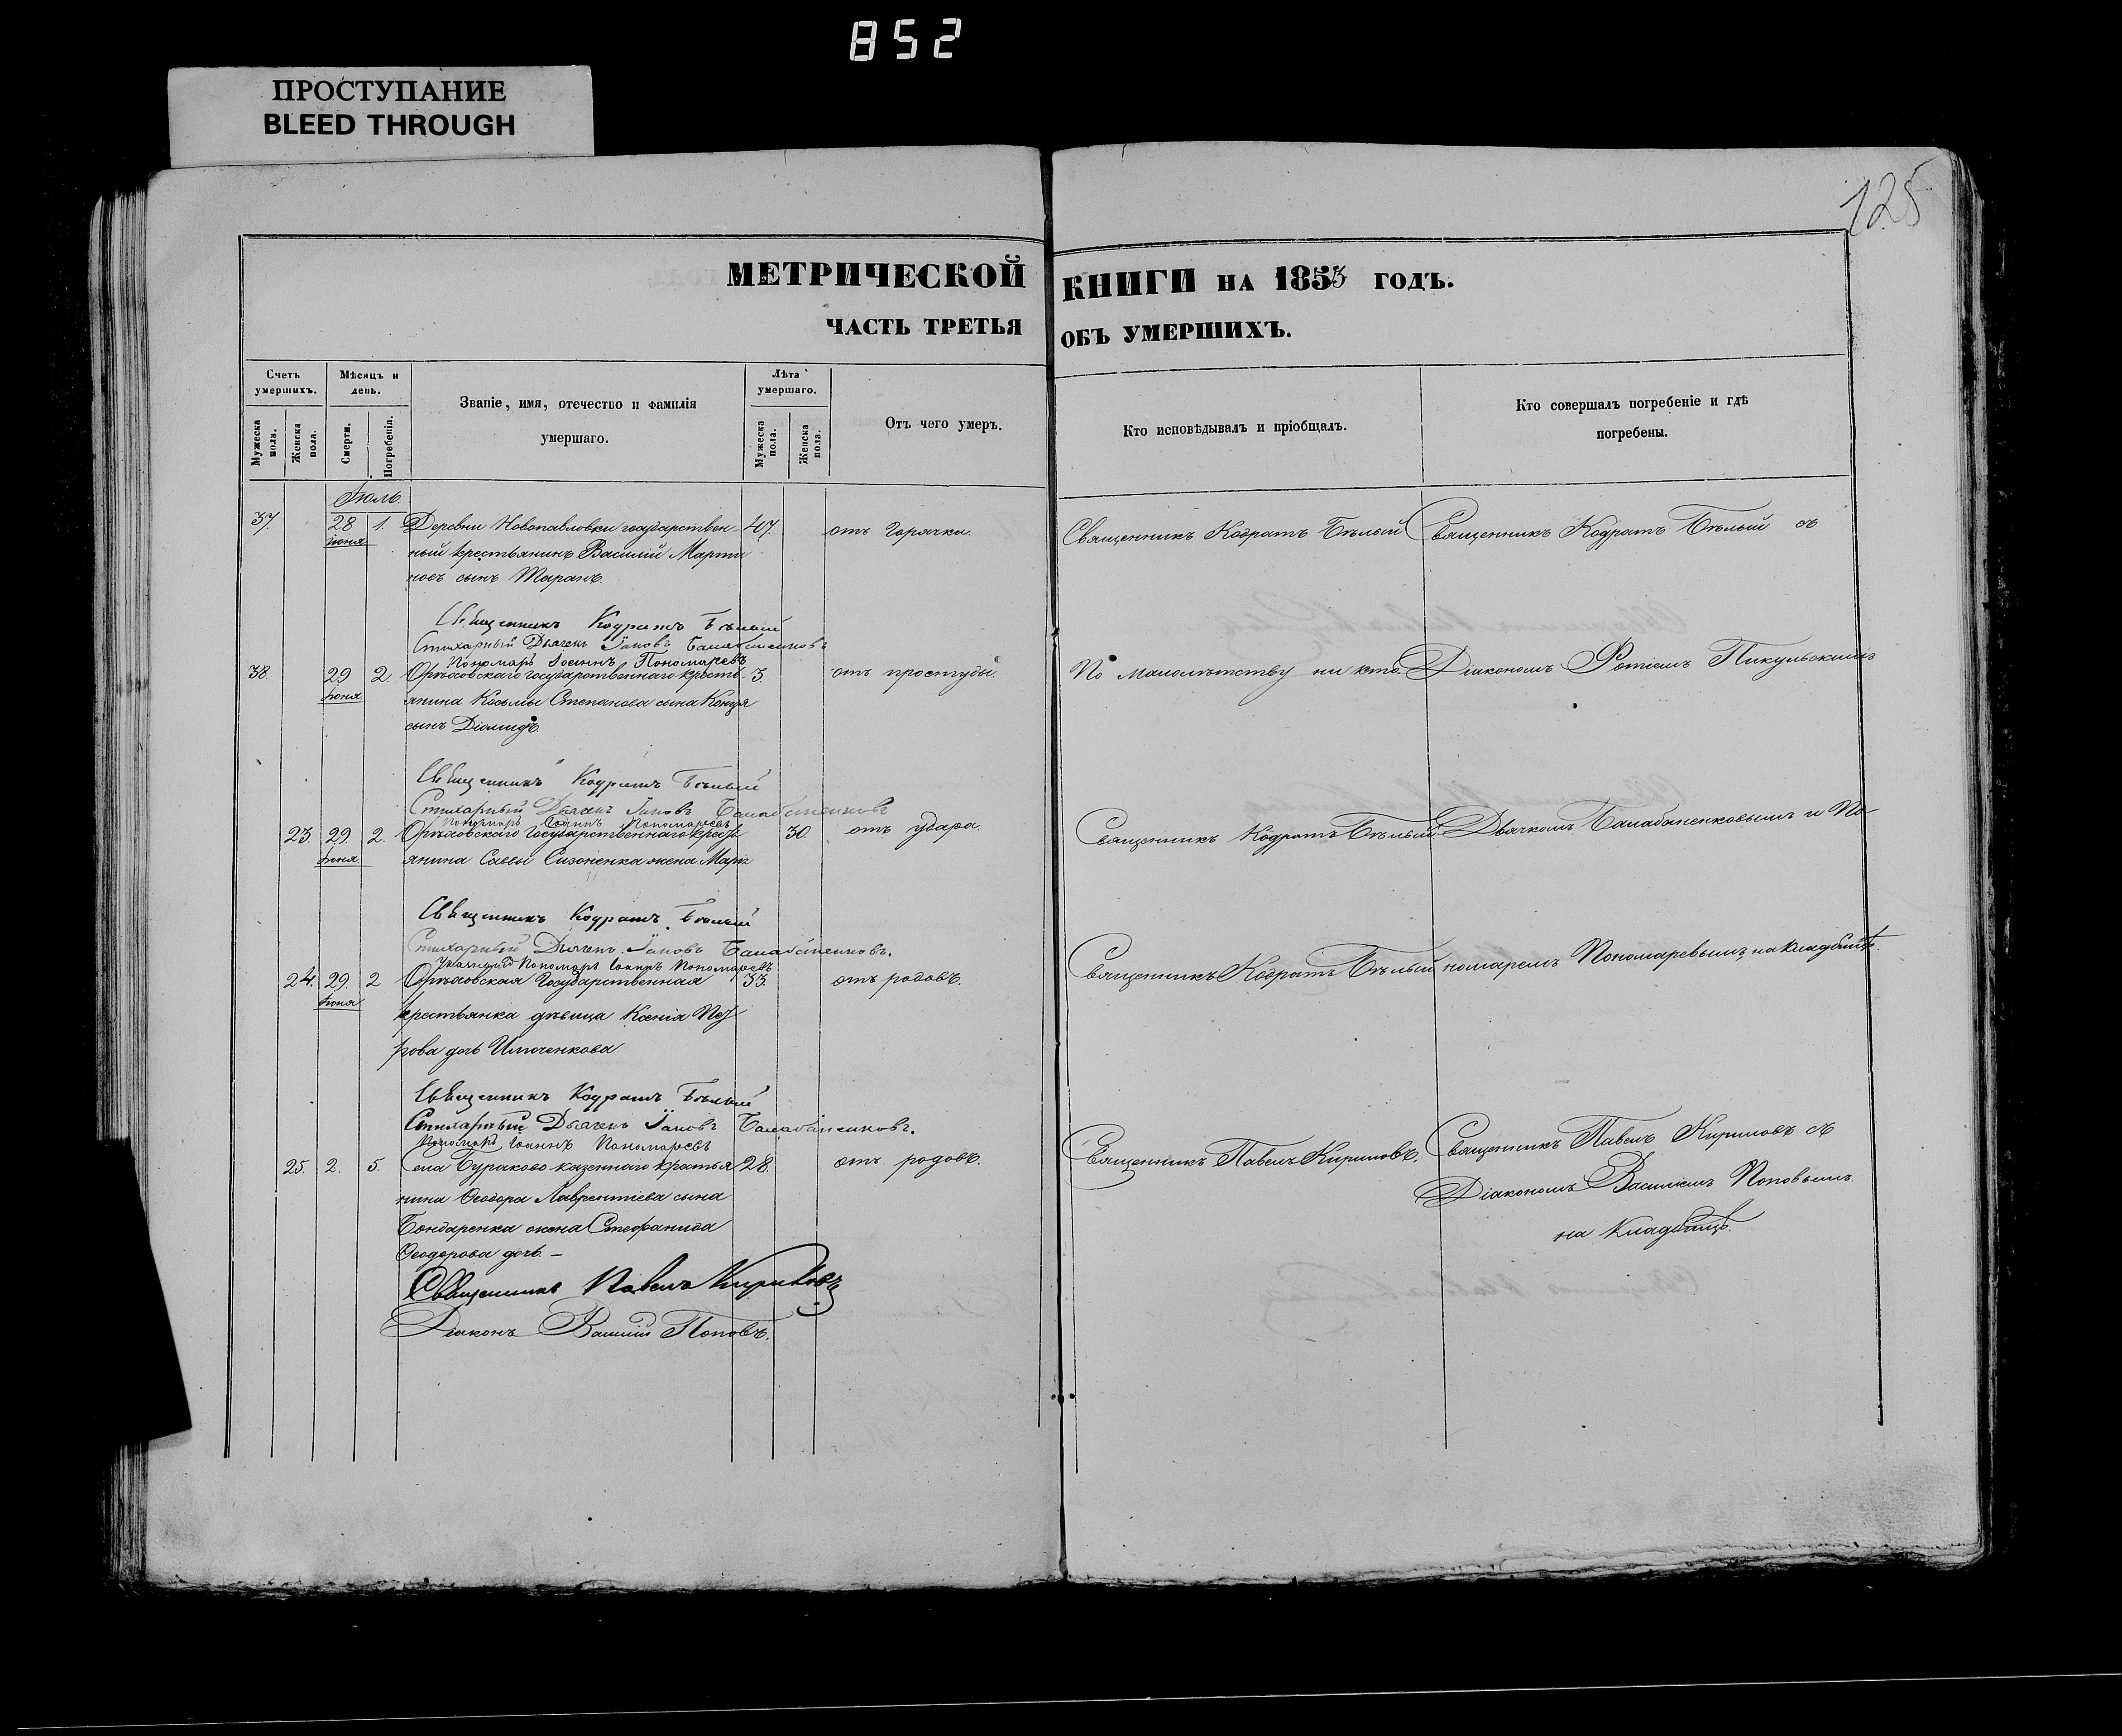 852
ПРОСТУПАНИЕ
BLEED THROUGH
125
МЕТРИЧЕСКОЙ КНИГИ НА 1853 ГОДЪ.
ЧАСТЬ ТРЕТЬЯ ОБЪ УМЕРШИХЪ.
Счетъ умершихъ.
Мужеска пола.
Женска пола.
Мѣсяцъ и день.
Смерти.
Погребенія.
Званіе, имя, отечество и фамилія умершаго.
Лѣта умершаго.
Мужеска пола.
Женска пола.
Отъ чего умеръ.
Кто исповѣдывалъ и пріобщалъ.
Кто совершалъ погребеніе и гдѣ погребены.
Іюль.
37. 28 1. Деревни Новопавловки государствен- 47. отъ горячки. Священникъ Кодратъ Бѣлый Священникъ Кодратъ Бѣлый съ
іюня ный крестьянинъ Василій Марти
новъ сынъ Таранъ.
Священникъ Кодратъ Бѣлый
Стихарный Дьячекъ Іаковъ Балабаненковъ
Пономарь Іоаннъ Пономаревъ
38. 29 2. Орѣховскаго государственнаго кресть- 3. отъ простуды. По малолѣтству ни кто. Діакономъ Пикульскимъ
іюня янина Косьмы Степанова сына
сынъ Діомидъ.
Священникъ Кодратъ Бѣлый
Стихарный Дьячекъ Іаковъ Балабаненковъ
Пономарь Іоаннъ Пономаревъ
23. 29. 2. Орѣховскаго Государственнаго крест 30. отъ удара. Священникъ Кодратъ Бѣлый. Дьячкомъ Балабаненковымъ и По-
іюня янина Саввы Сизоненка жена Марія
Священникъ Кодратъ Бѣлый
Стихарный Дьячекъ Іаковъ Балабаненковъ.
Пономарь Іоаннъ Пономаревъ
24. 29. 2 Орѣховская Государственная 33. отъ родовъ. Священникъ Кодратъ Бѣлый номаремъ Пономаревымъ, на кладбищѣ.
іюня крестьянка дѣвица Ксенія Пет
рова дочь
Священникъ Кодратъ Бѣлый
Стихарный Дьячекъ Іаковъ Балабаненковъ.
Пономарь Іоаннъ Пономаревъ
25. 2. 5. села казеннаго крестья 28. отъ родовъ. Священникъ Павелъ Кириловъ. Священникъ Павелъ Кириловъ съ
нина Ѳеодора Лаврентіева сына Діакономъ Василіемъ Поповымъ
Бондаренка жена Стефанида на кладбищѣ.
Ѳеодорова дочь. –
Священникъ Павелъ Кириловъ
Діаконъ Василій Поповъ.